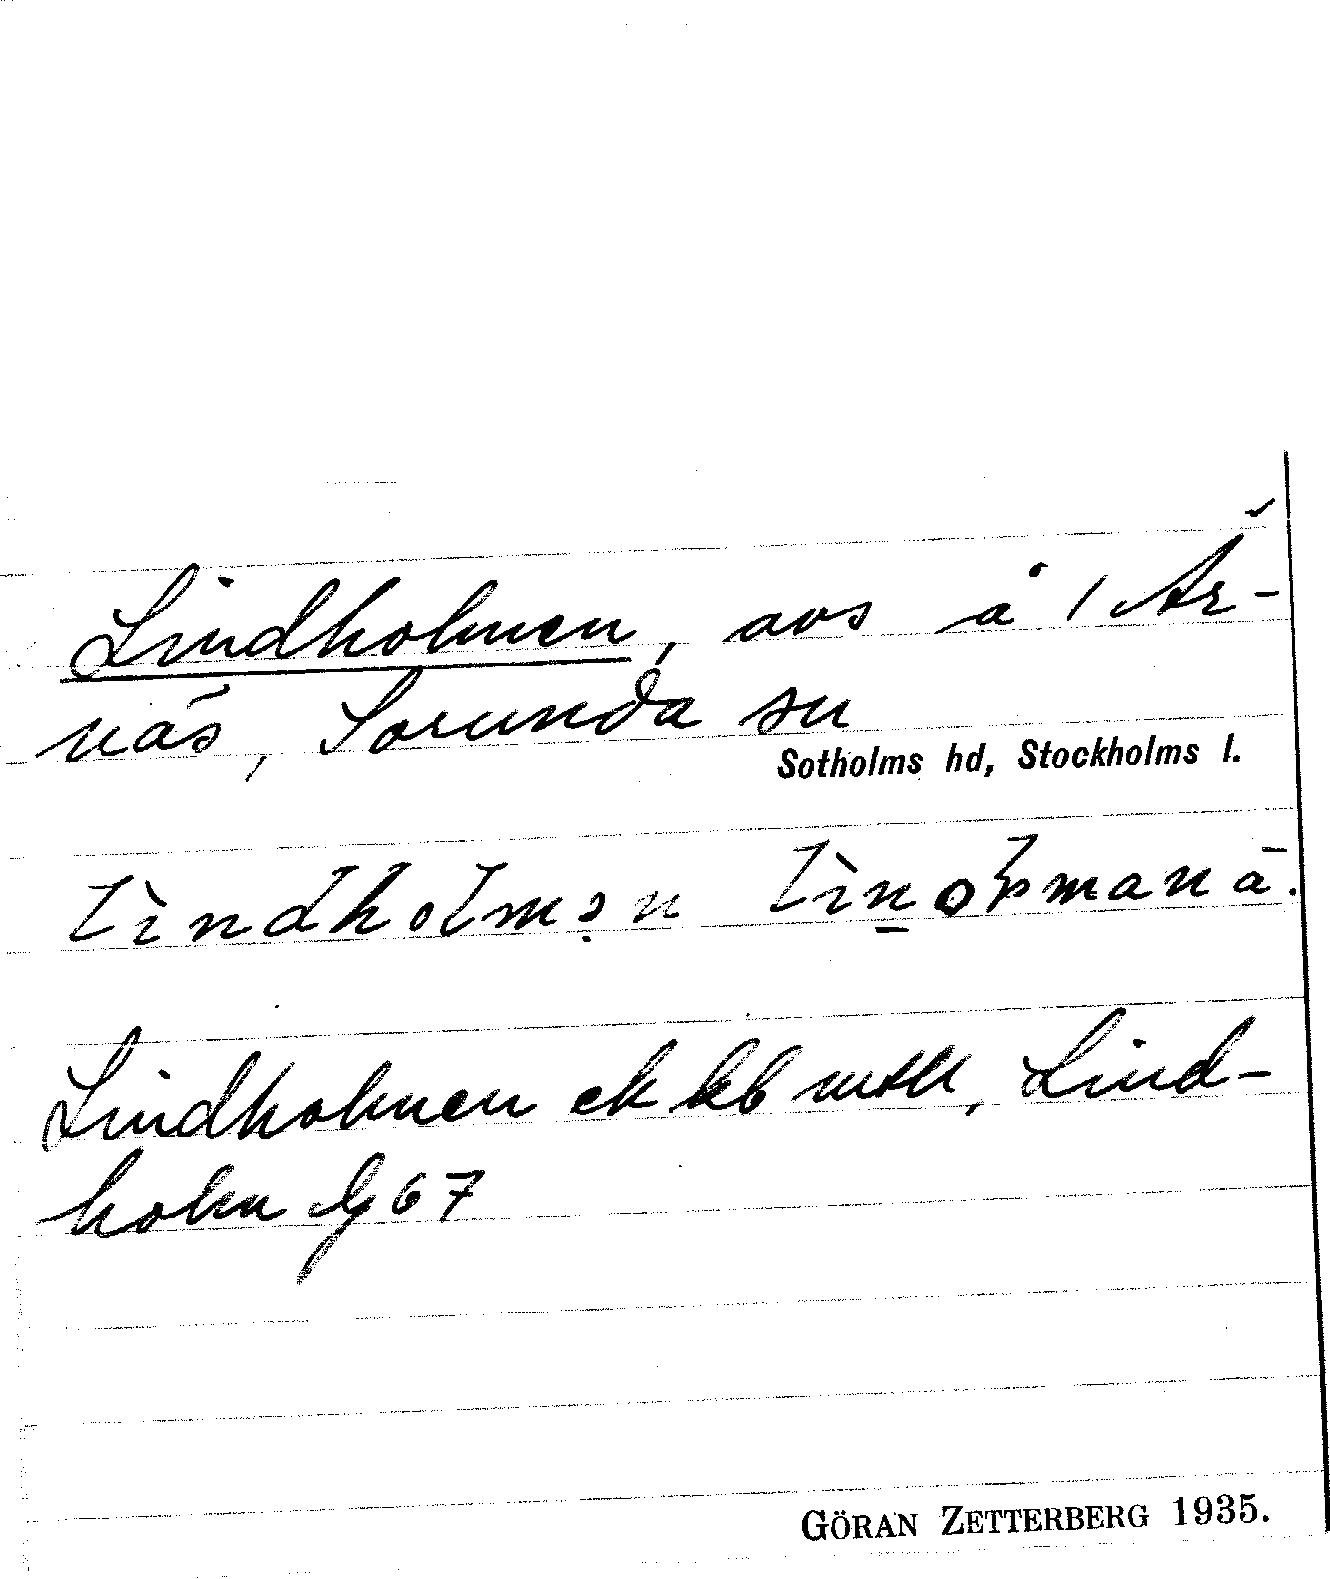 Lindholmen, avs å 1 År-
näs, Sorunda sn
Sotholms hd, Stockholms l.
lìndholmən
Lindholmen ek kb mtll, Lind-
holm Jg 67
GÖRAN ZETTERBERG 1935.